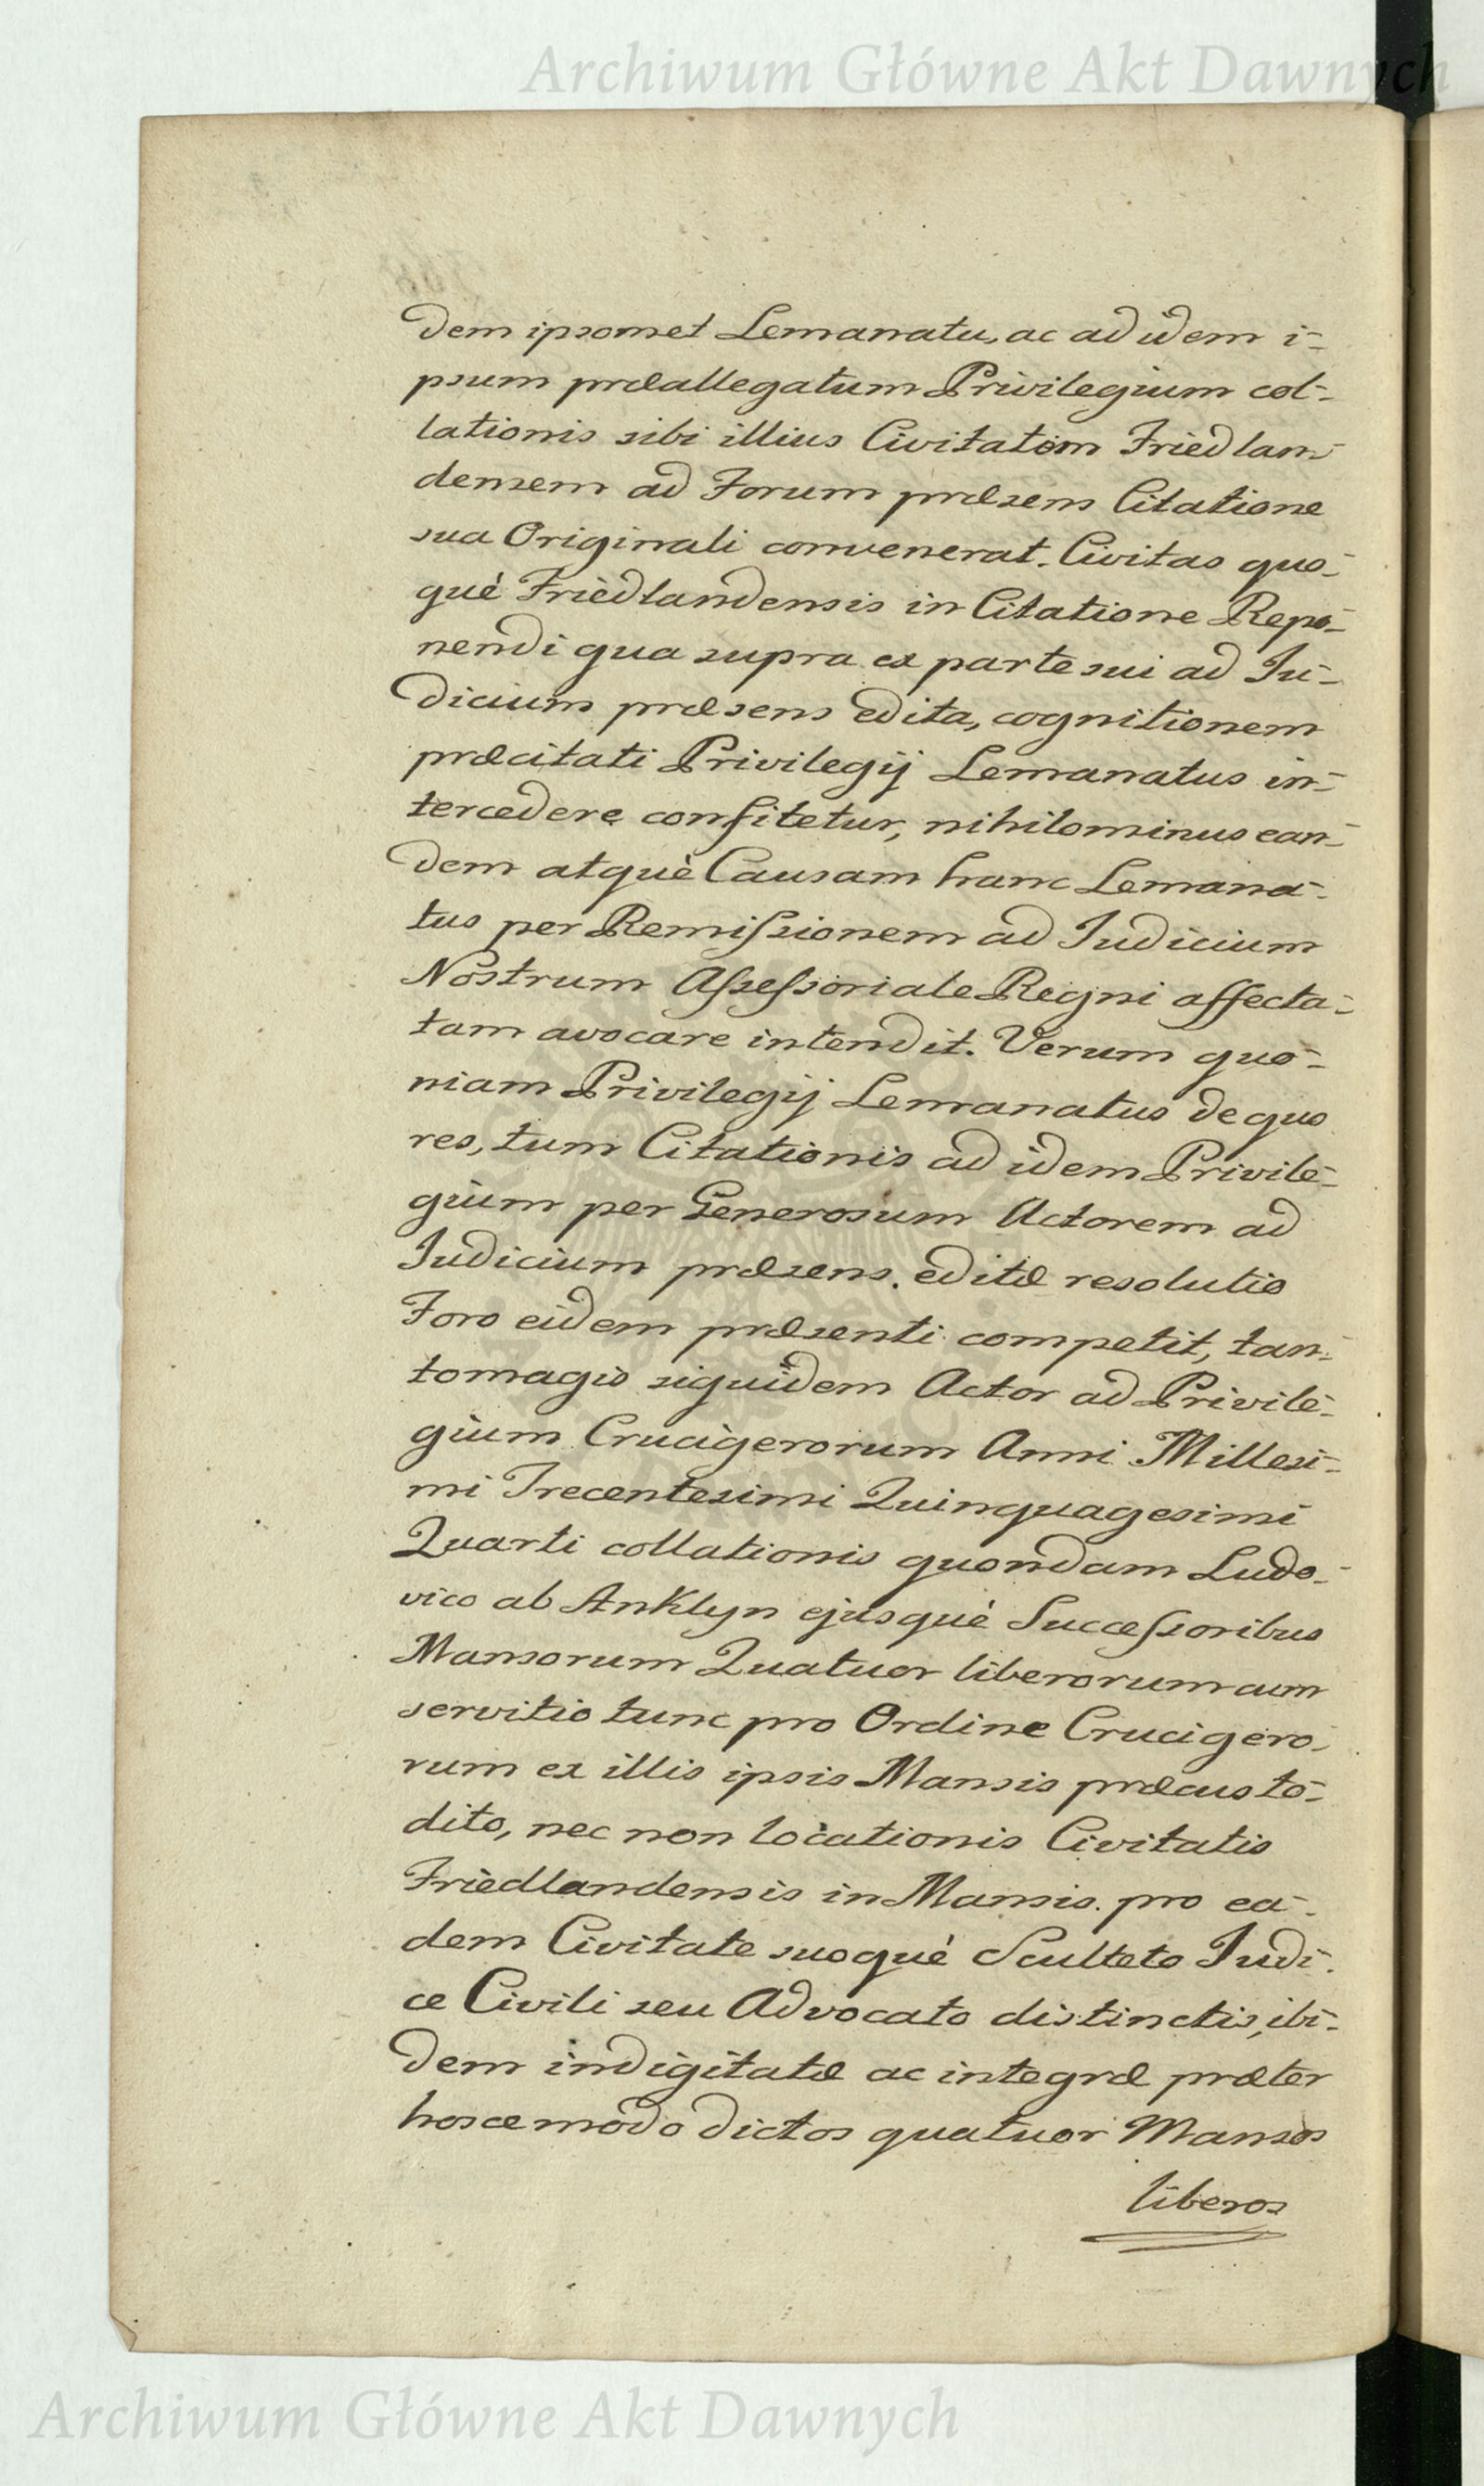 Archiwum Główne Akt Dawnych
dem ipsomet Lemanatu, ac ad idem i-
psum præallegatum Privilegium col-
lationis sibi illius Civitatem Friedlan-
densem ad Forum præsens Citatione
sua Originali convenerat. Civitas quo-
què Friedlandensis in Citatione Repo-
nendi qua supra ex parte sui ad Ju-
dicium præsens edita, cognitionem
præcitati Privilegij Lemanatus in-
tercedere confitetur, nihilominus ean-
dem atquè Causam hanc Lemana-
tus per Remissionem ad Judicium
Nostrum Assessoriale Regni affecta-
tam avocare intendit. Verum quo-
niam Privilegij Lemanatus de quo
res, tum Citationis ad idem Privile-
gium per Generosum Actorem ad
Judicium præsens editæ resolutio
Foro eidem præsenti competit, tan-
tomagis siquidem Actor ad Privile-
gium Crucigerorum Anni Millesi-
mi Trecentesimi Quinquagesimi
Quarti collationis quondam Ludo-
vico ab Anklyn ejusquè Successoribus
Mansorum Quatuor liberorum cum
servitio tunc pro Ordine Crucigero-
rum ex illis ipsis Mansis præcusto-
dito, nec non locationis Civitatis
Friedlandensis in Mansis pro ea-
dem Civitate suoquè Sculteto Judi-
ce Civili seu Advocato distinctis, ibi-
dem indigitatæ ac integræ præter
hosce modo dictos quatuor Mansos
liberos
Archiwum Główne Akt Dawnych